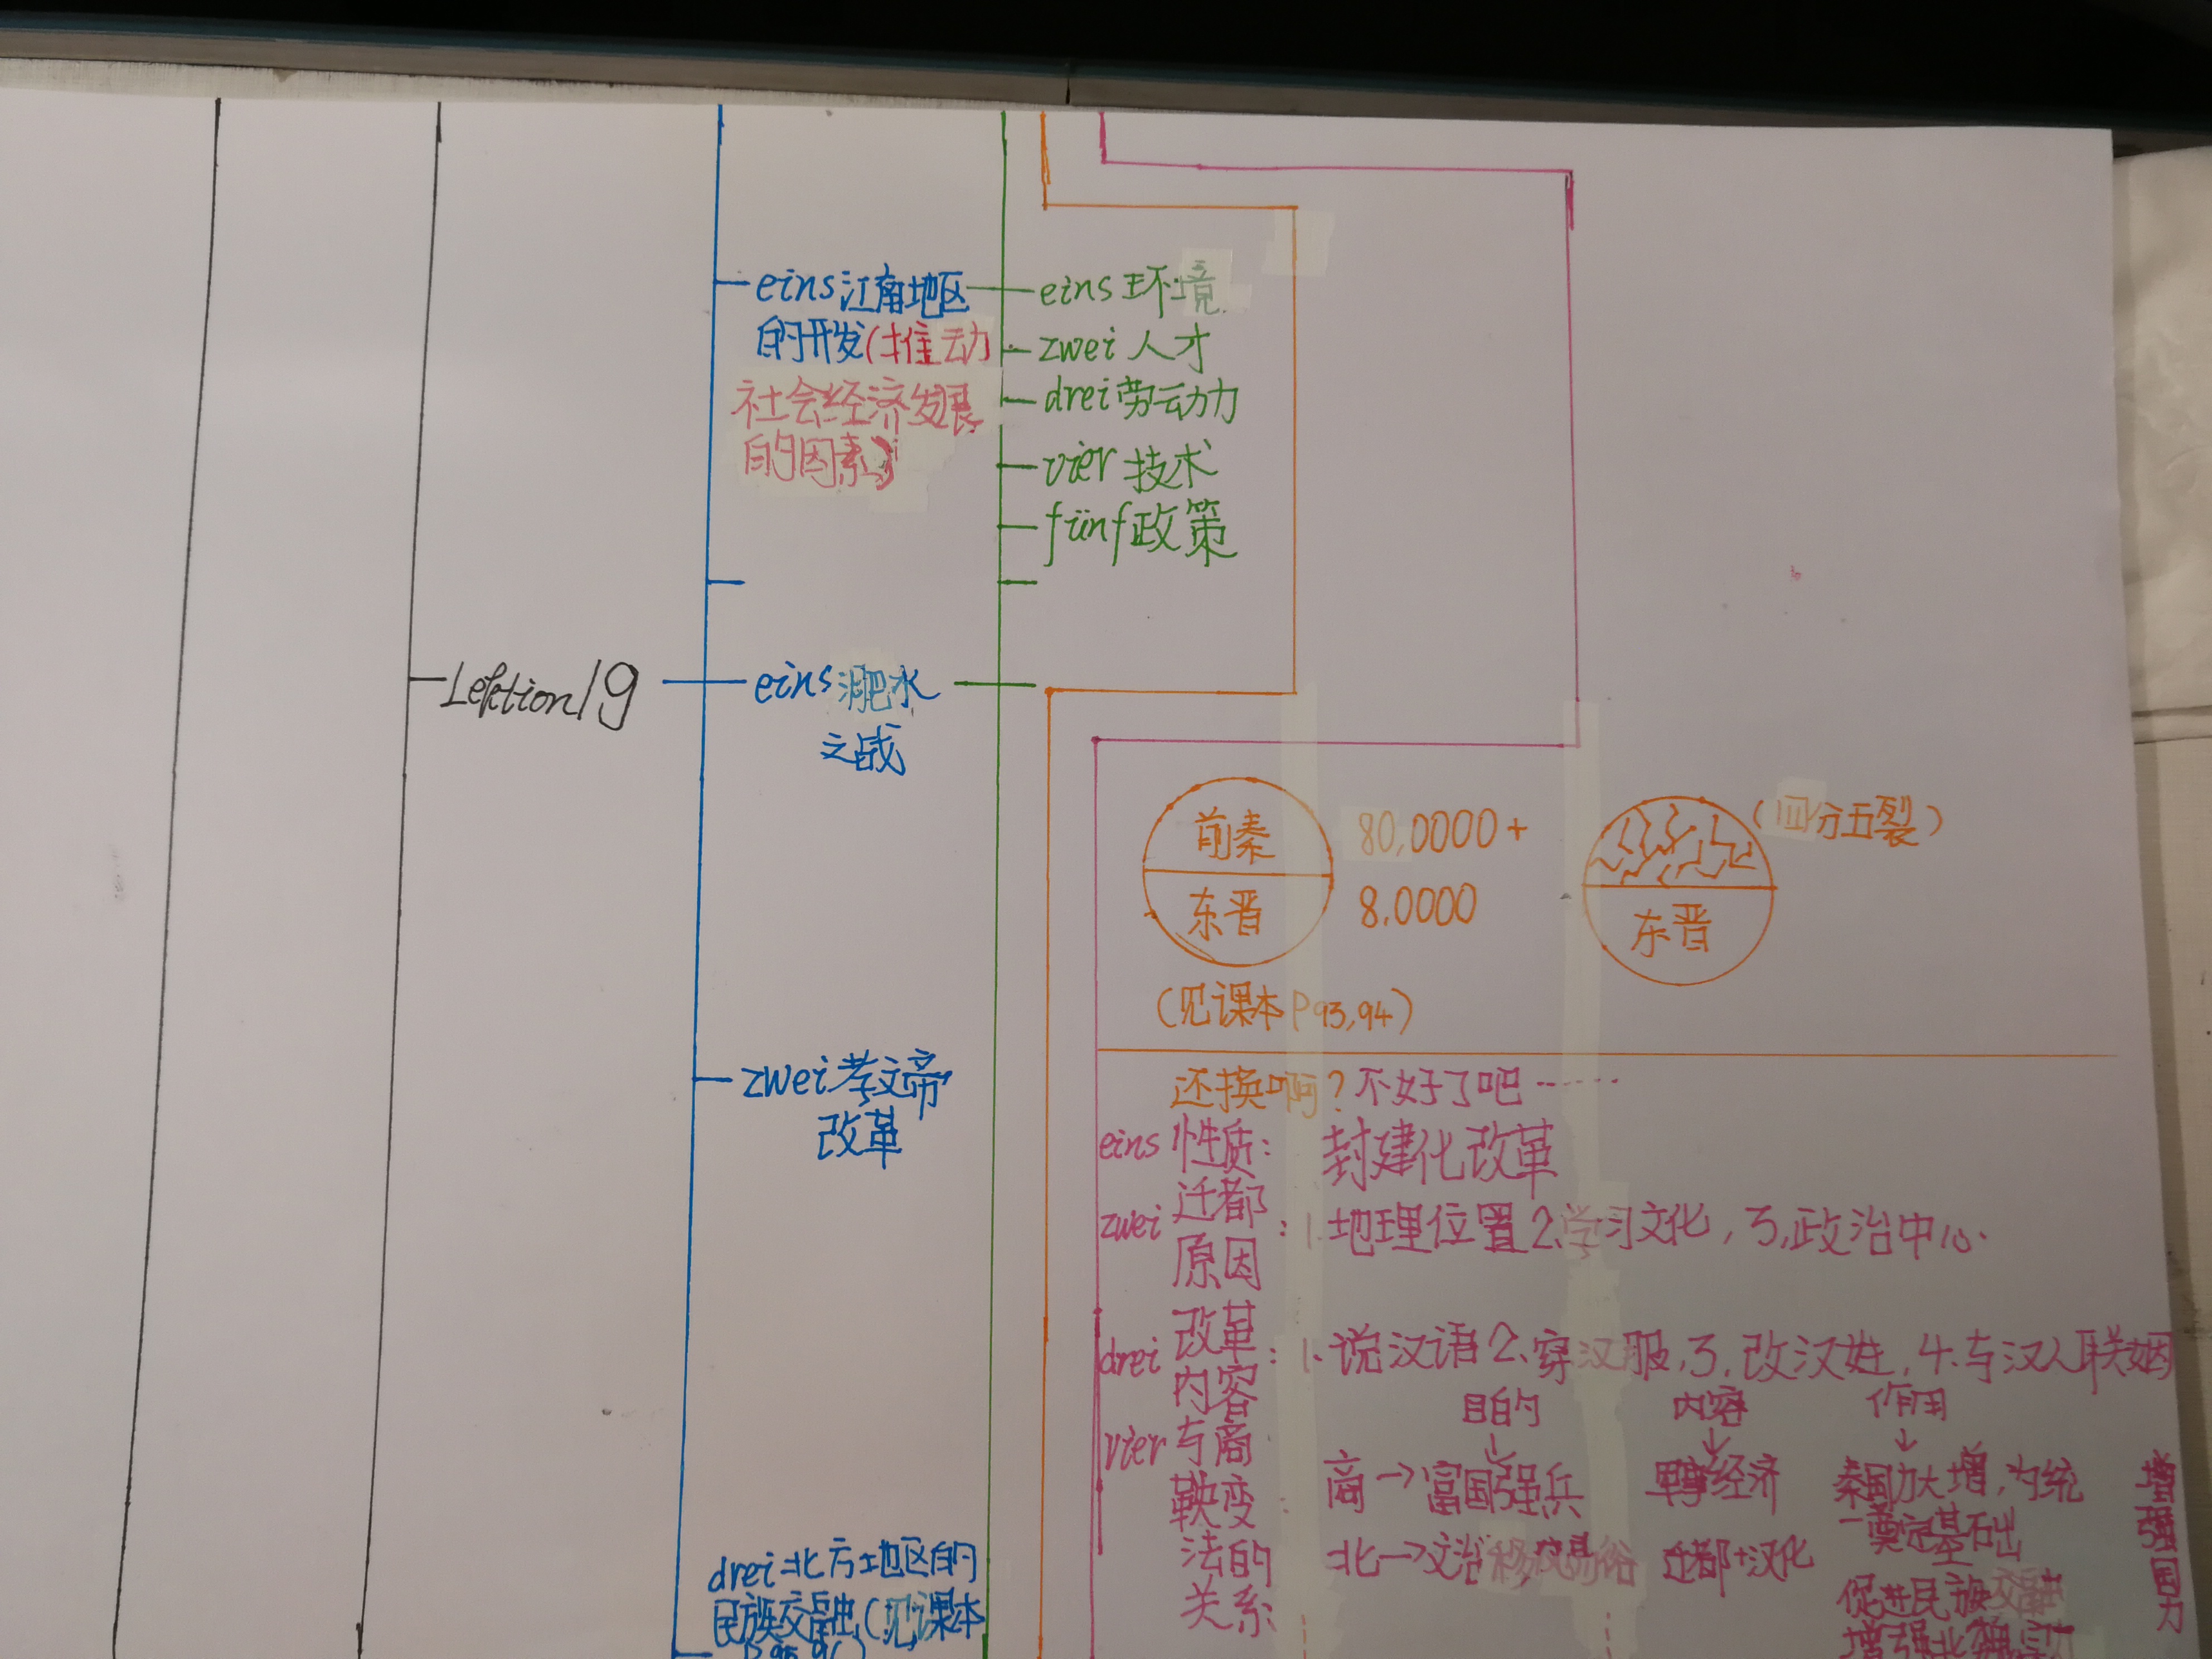 eins江南地区
的开发(推动
社会经济发展
的因素)
eins环境
zwei人才
drei劳动力
vier技术
fünf政策
Lektion19
eins淝水
之战
前秦
东晋
80,0000+
8.0000
(四分五裂)
东晋
(见课本P93,94)
zwei孝文帝
改革
还换啊?不好了吧……
eins性质:封建化改革
zwei迁都原因:1.地理位置2.学习文化,3.政治中心.
drei改革内容:1.说汉语2.穿汉服,3.改汉姓,4.与汉人联姻
vier与商鞅变法的关系:
目的↓
内容↓
作用↓
商→富国强兵
经济
秦国力大增,为统
一奠定基础
北→文治移风易俗
迁都+汉化
促进民族交融
增强北魏实
增强国力
drei北方地区的
民族交融(见课本